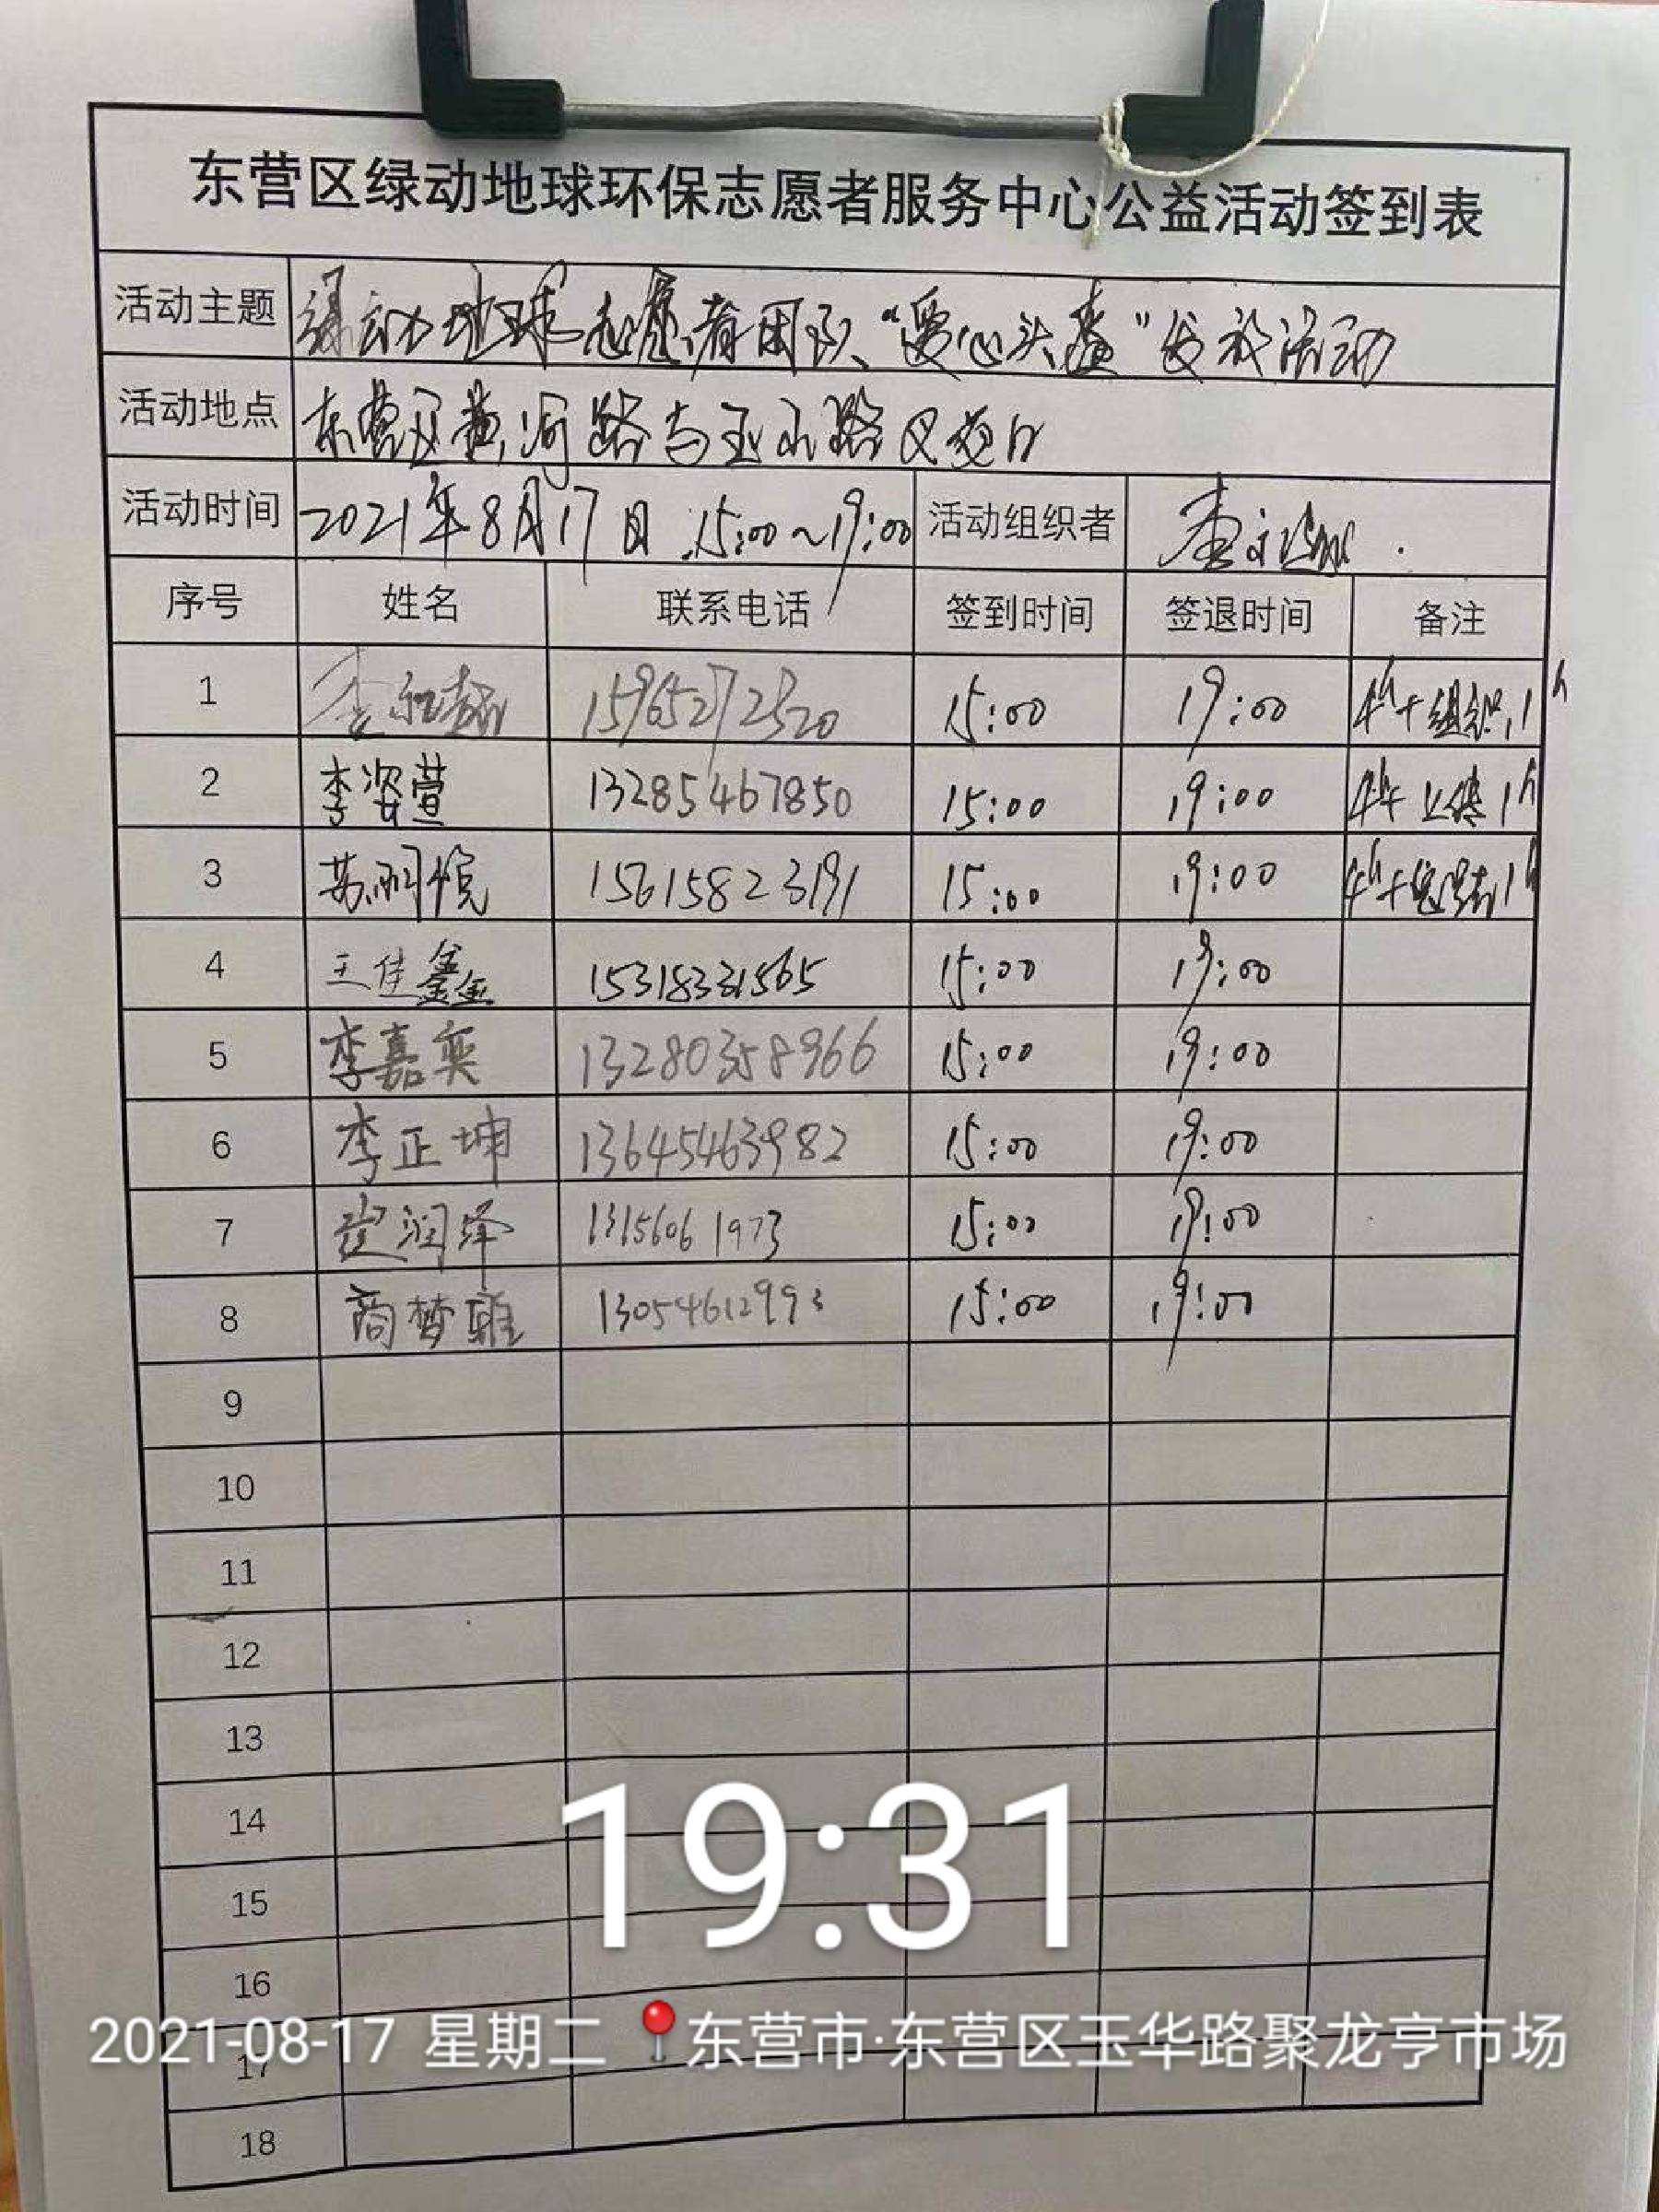 东营区绿动地球环保志愿者服务中心公益活动签到表
活动主题 绿动地球志愿者团队“爱心头盔”发放活动
活动地点 东营区黄河路与玉山路交叉口
活动时间 2021年8月17日 15:00~19:00 活动组织者
序号 姓名 联系电话 签到时间 签退时间 备注
1 15965272520 15:00 19:00 4h+组织1h
2 李姿萱 13285467850 15:00 19:00 4h+1h
3 苏雨悦 15615823191 15:00 19:00 4h+1h
4 王佳鑫 15318331565 15:00 19:00
5 李嘉奕 13280358966 15:00 19:00
6 李正坤 13645463982 15:00 19:00
7 润泽 13156061973 15:00 19:00
8 商梦雅 13054612993 15:00 19:00
9
10
11
12
13
14
19:31
15
16
2021-08-17 星期二 东营市·东营区玉华路聚龙亨市场
17
18